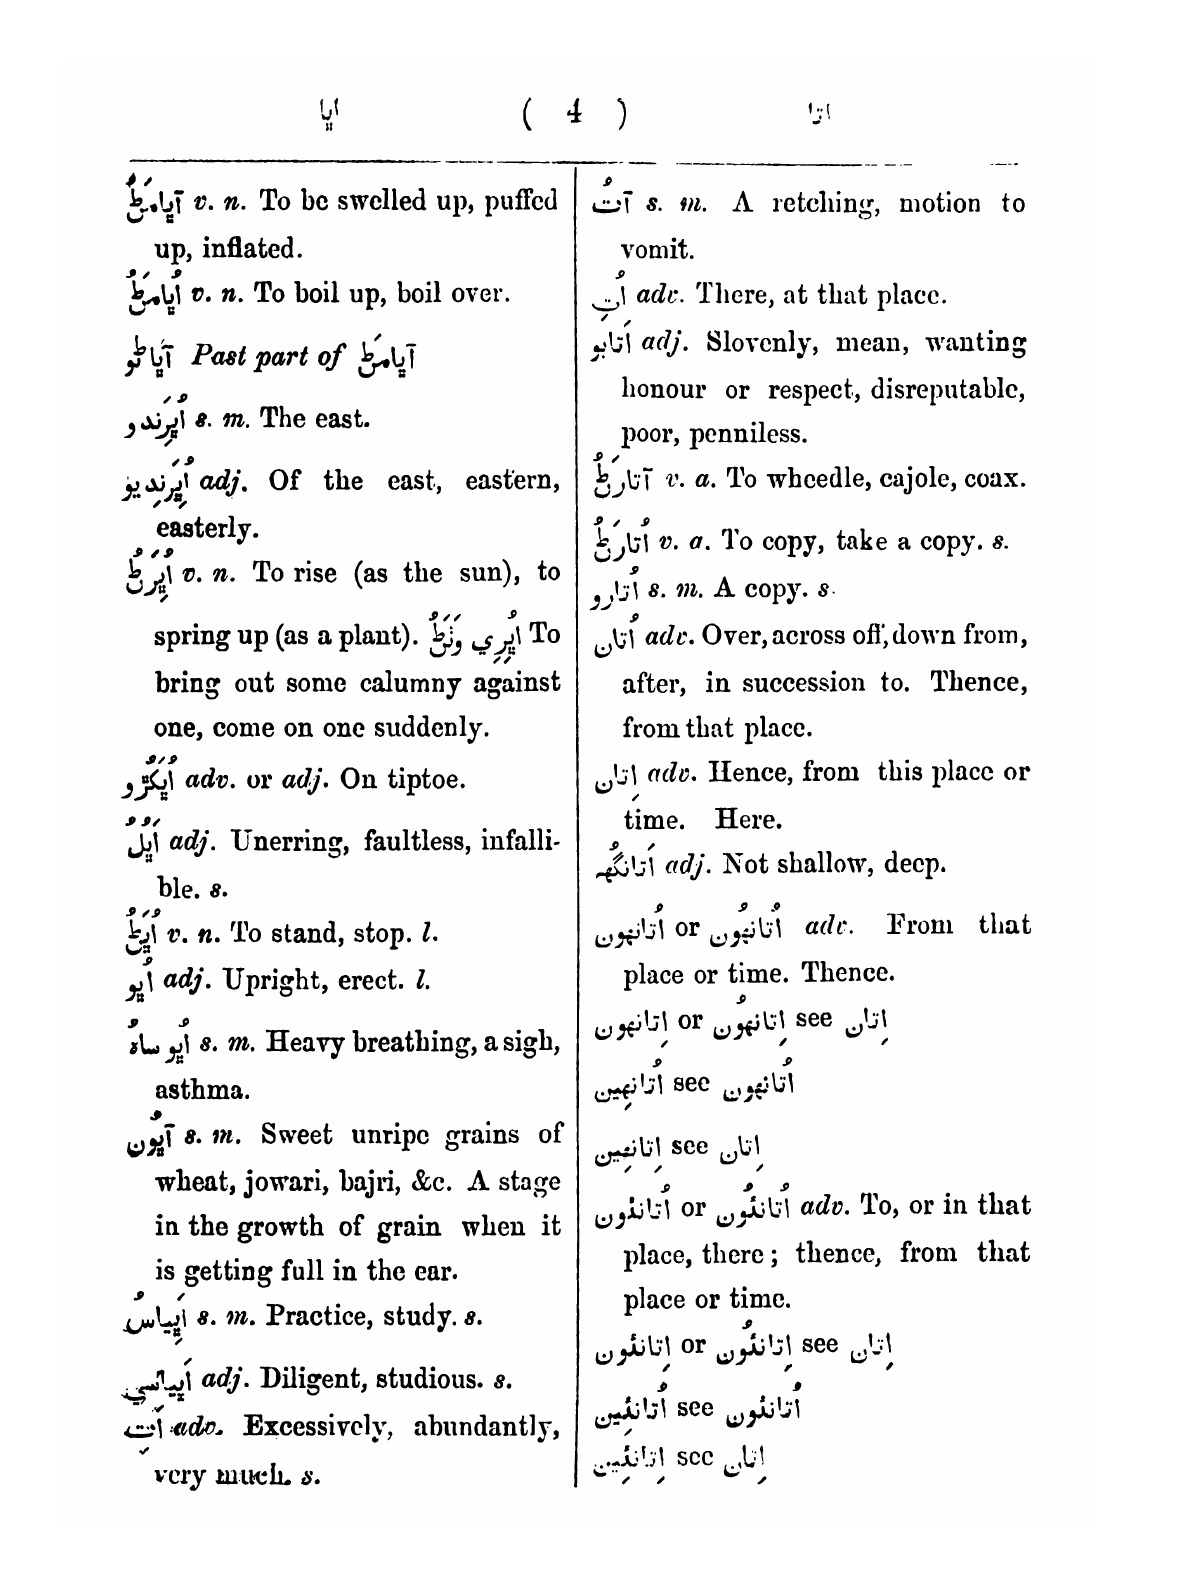 اٻا ( 4 ) اتا
v. n. To be swelled up, puffed
up, inflated.
v. n. To boil up, boil over.
Past part of
s. m. The east.
adj. Of the east, eastern,
easterly.
v. n. To rise (as the sun), to
spring up (as a plant). To
bring out some calumny against
one, come on one suddenly.
adv. or adj. On tiptoe.
adj. Unerring, faultless, infalli-
ble. s.
v. n. To stand, stop. l.
adj. Upright, erect. l.
s. m. Heavy breathing, a sigh,
asthma.
s. m. Sweet unripe grains of
wheat, jowari, bajri, &c. A stage
in the growth of grain when it
is getting full in the ear.
s. m. Practice, study. s.
adj. Diligent, studious. s.
اَتِ adv. Excessively, abundantly,
very much. s.
آتُ s. m. A retching, motion to
vomit.
اُتِ adv. There, at that place.
adj. Slovenly, mean, wanting
honour or respect, disreputable,
poor, penniless.
v. a. To wheedle, cajole, coax.
v. a. To copy, take a copy. s.
اُتارو s. m. A copy. s.
اُتان adv. Over, across off, down from,
after, in succession to. Thence,
from that place.
اِتان adv. Hence, from this place or
time. Here.
adj. Not shallow, deep.
اُتانهون or اُتانهُون adv. From that
place or time. Thence.
اِتانهون or اِتانهُون see اِتان
اُتانهِين see اُتانهون
اِتانهِين see اِتان
اُتانئون or اُتانئُون adv. To, or in that
place, there ; thence, from that
place or time.
اِتانئون or اِتانئُون see اِتان
اُتانئِين see اُتانئون
اِتانئِين see اِتان